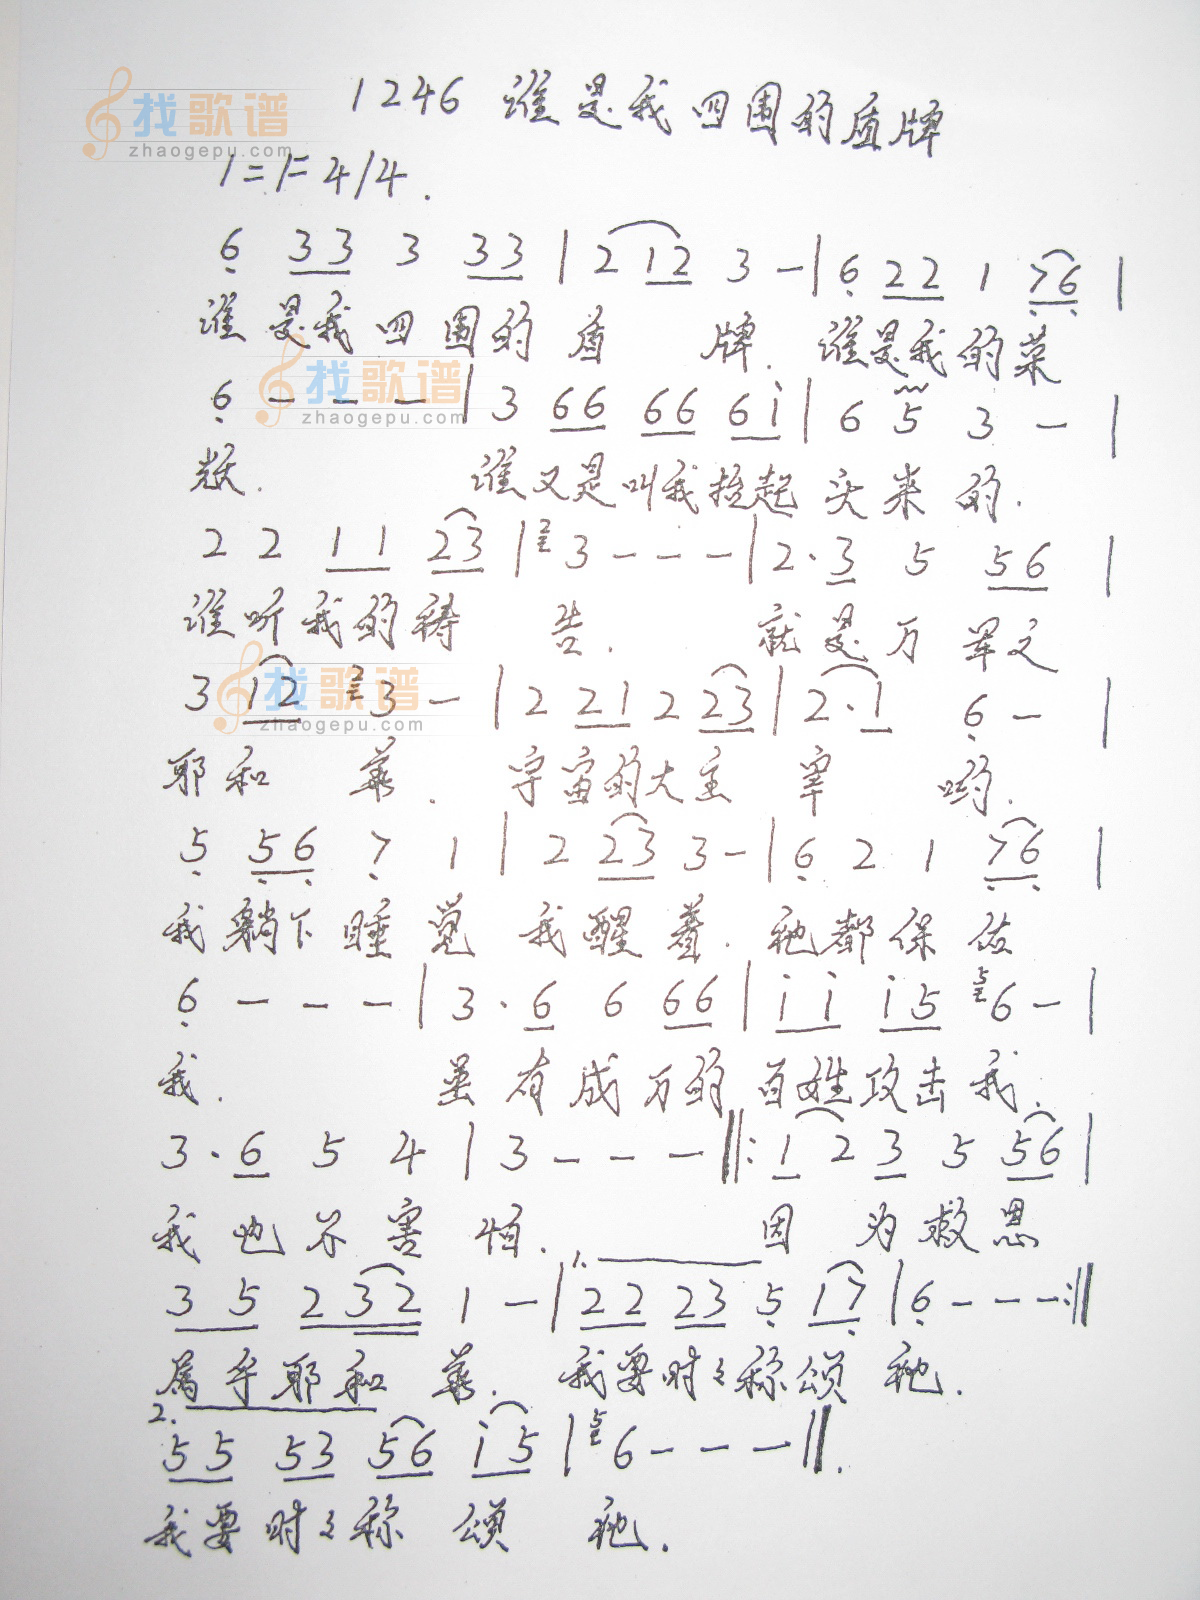 找歌谱
zhaogepu.com
1246 谁是我四围的盾牌
1=F 4/4.
6 33 3 33 | 2 12 3 - | 6 22 1 76 |
谁是我四围的盾 牌. 谁是我的荣
找歌谱
zhaogepu.com
6 - - - | 3 66 66 6i | 6 5 3 - |
耀. 谁又是叫我抬起头来的.
2 2 11 23 | 2 3 - - - | 2·3 5 56 |
谁听我的祷 告. 就是万军之
找歌谱
zhaogepu.com
3 12 2 3 - | 2 21 2 23 | 2·1 6 - |
耶和 华. 宇宙的大主 宰 哟.
5 56 7 1 | 2 23 3 - | 6 2 1 76 |
我躺下睡觉 我醒着. 祂都保佑
6 - - - | 3·6 6 66 | i i i5 5 6 - |
我. 虽有成万的百姓攻击我.
3·6 5 4 | 3 - - - ‖: 1 2 3 5 56 |
我也不害怕. 因 为救恩
1.
3 5 2 32 1 - | 22 23 5 17 | 6 - - - :‖
属乎耶和 华. 我要时々称颂 祂.
2.
55 53 56 i5 | 5 6 - - - ‖.
我要时々称 颂 祂.